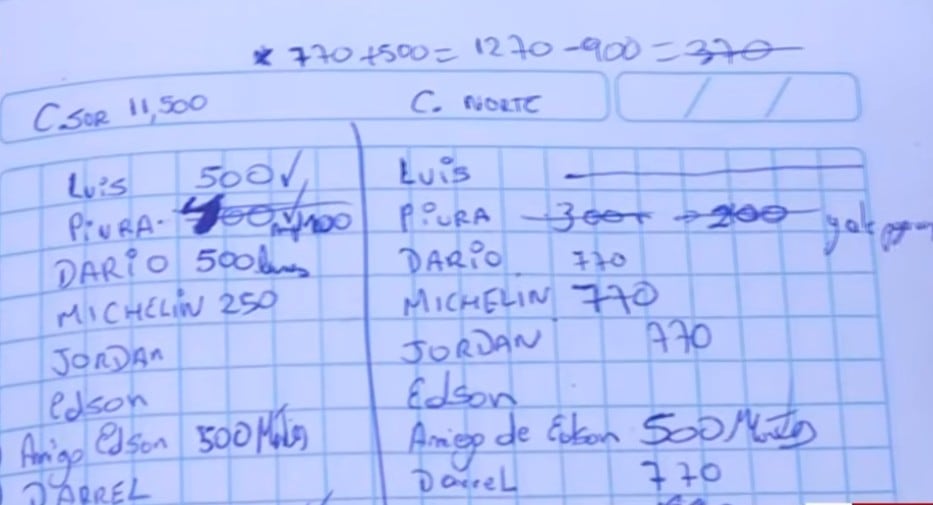 * 770 +500 = 1270 -900 = 370
C. SUR 11,500 C. NORTE
Luis 500 ✓ Luis
PiURA- PiURA 300 → 200
DARiO 500 DARiO 770
MICHELiN 250 MICHELIN 770
JORDAN JORDAN 770
edson Edson
Amigo Edson 500 Amigo de Edson 500
DARREL Darrel 770